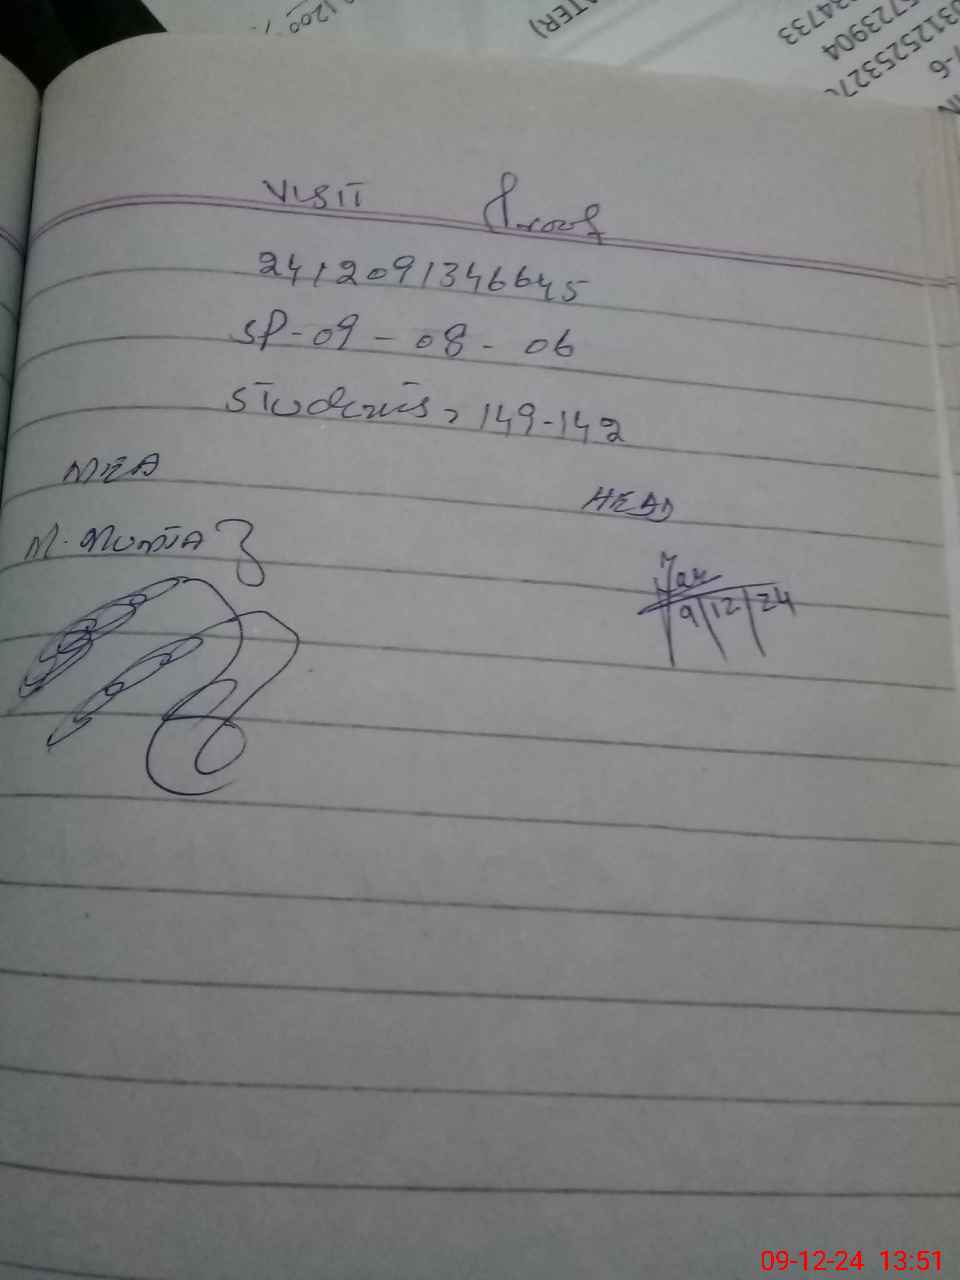 1200
ATER)
34733
5723904
03125253270
7-6
VISIT Proof
2412091346645
SP-09-08-06
Students, 149-142
MEA
HEAD
M. Mumta
9/12/24
09-12-24 13:51